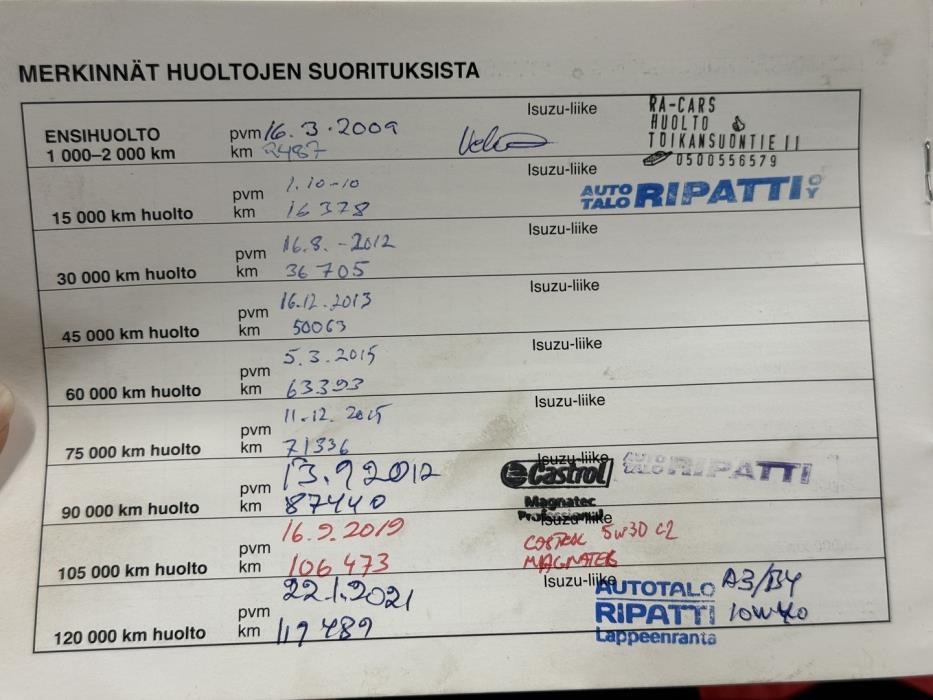 MERKINNÄT HUOLTOJEN SUORITUKSISTA
ENSIHUOLTO pvm 16.3.2009 Isuzu-liike RA-CARS
HUOLTO
1 000–2 000 km km 2487 TOIKANSUONTIE 11
0500556579
pvm 1.10-10 Isuzu-liike
15 000 km huolto km 16378 AUTO TALO RIPATTI OY
pvm 16.8.-2012 Isuzu-liike
30 000 km huolto km 36705
pvm 16.12.2013 Isuzu-liike
45 000 km huolto km 50063
pvm 5.3.2015 Isuzu-liike
60 000 km huolto km 63393
pvm 11.12.2015 Isuzu-liike
75 000 km huolto km 71336
pvm 13.9.2012 Isuzu-liike
Castrol AUTO TALO RIPATTI
90 000 km huolto km 87440 Magnatec
Professional
pvm 16.9.2019 Isuzu-liike
5W30 C2
105 000 km huolto km 106 473 MAGNATEC
pvm 22.1.2021 Isuzu-liike
AUTOTALO A3/B4
120 000 km huolto km 119489 RIPATTI 10W40
Lappeenranta